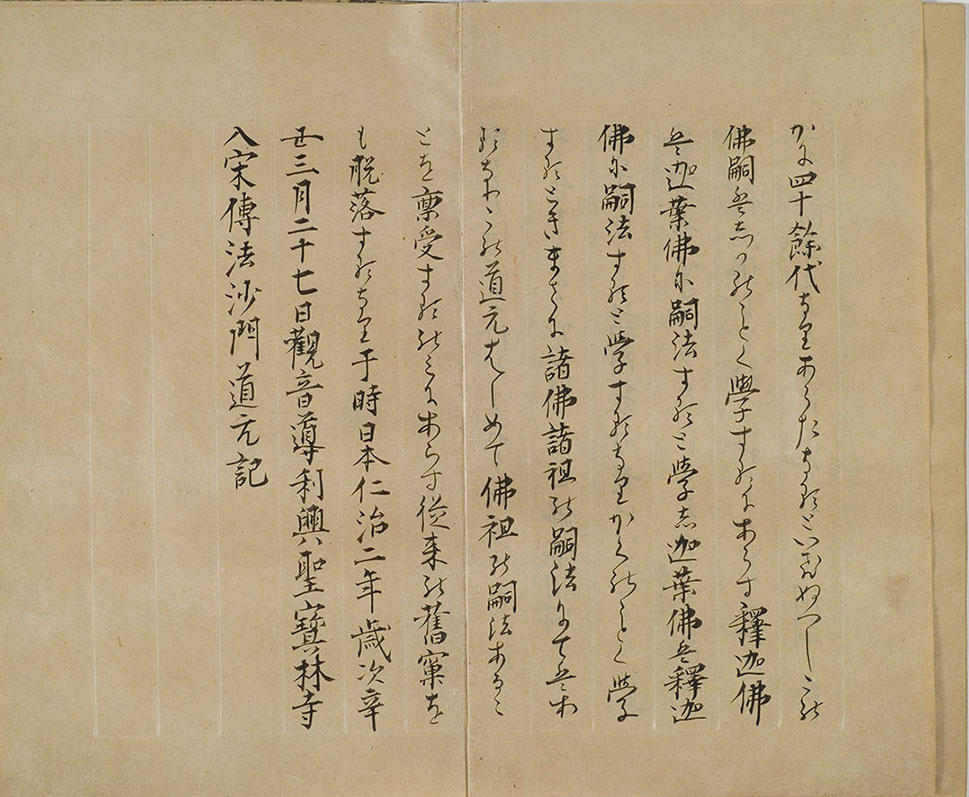 かに四十餘代なりあらたなるといひぬへしこの
佛嗣はしかのことく學するにあらす釋迦佛
は迦葉佛に嗣法すると學し迦葉佛は釋迦
佛に嗣法すると學するなりかくのことく學
するときまさに諸佛諸祖の嗣法にてはあ
るなりこの道元はしめて佛祖の嗣法あるこ
とを稟受するのみにあらす從来の舊窠を
も脱落するなり于時日本仁治二年歳次辛
丑三月二十七日觀音導利興聖寶林寺
入宋傳法沙門道元記